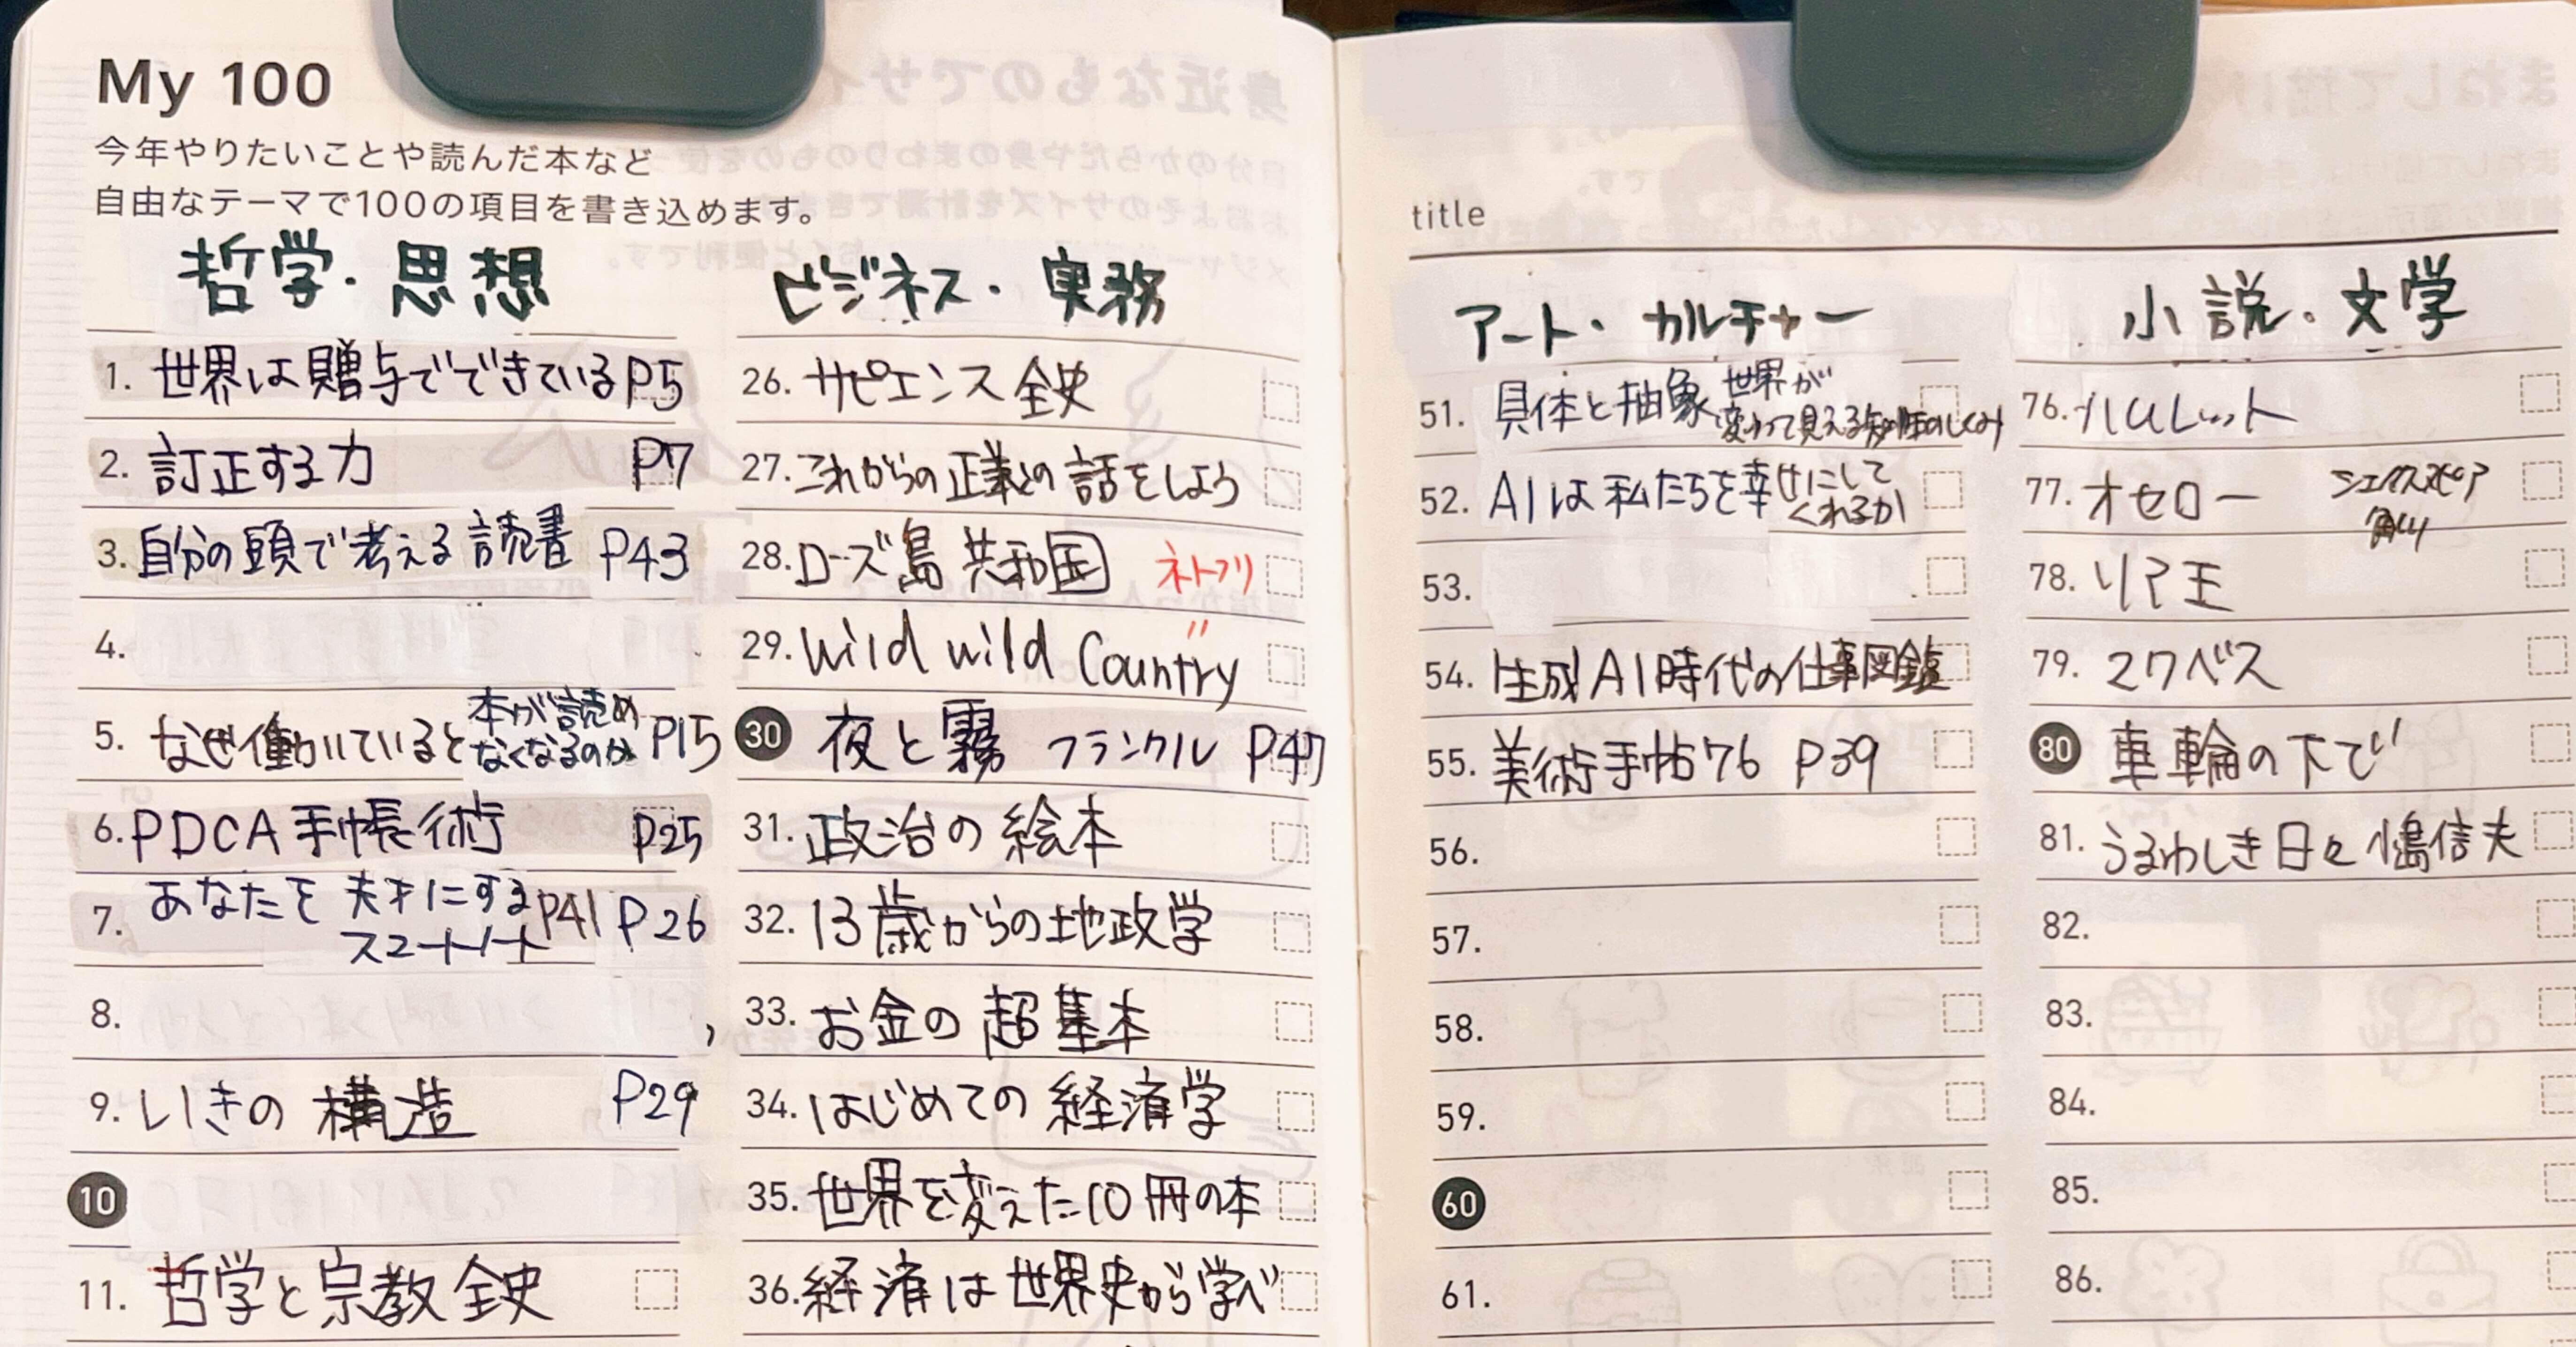 My 100
今年やりたいことや読んだ本など
自由なテーマで100の項目を書き込めます。
哲学・思想
1. 世界は贈与でできている P5
2. 訂正する力 P7
3. 自分の頭で考える読書 P43
4.
5. なぜ働いていると本が読め
なくなるのか P15
6. PDCA手帳術 P25
7. あなたを天才にする
スマートノート P41 P26
8.
9. いきの構造 P29
10
11. 哲学と宗教全史
ビジネス・実務
26. サピエンス全史
27. これからの正義の話をしよう
28. ローズ島共和国 ネトフリ
29. Wild wild Country 〃
30 夜と霧 フランクル P47
31. 政治の絵本
32. 13歳からの地政学
33. お金の超基本
34. はじめての経済学
35. 世界を変えた10冊の本
36. 経済は世界史から学べ
title
アート・カルチャー
51. 具体と抽象 世界が
変わって見える知性のしくみ
52. AIは私たちを幸せにして
くれるか
53.
54. 生成AI時代の仕事図鑑
55. 美術手帖76 P39
56.
57.
58.
59.
60
61.
小説・文学
76. ハムレット
77. オセロー シェイクスピア
角川
78. リア王
79. マクベス
80 車輪の下で
81. うるわしき日々 小島信夫
82.
83.
84.
85.
86.